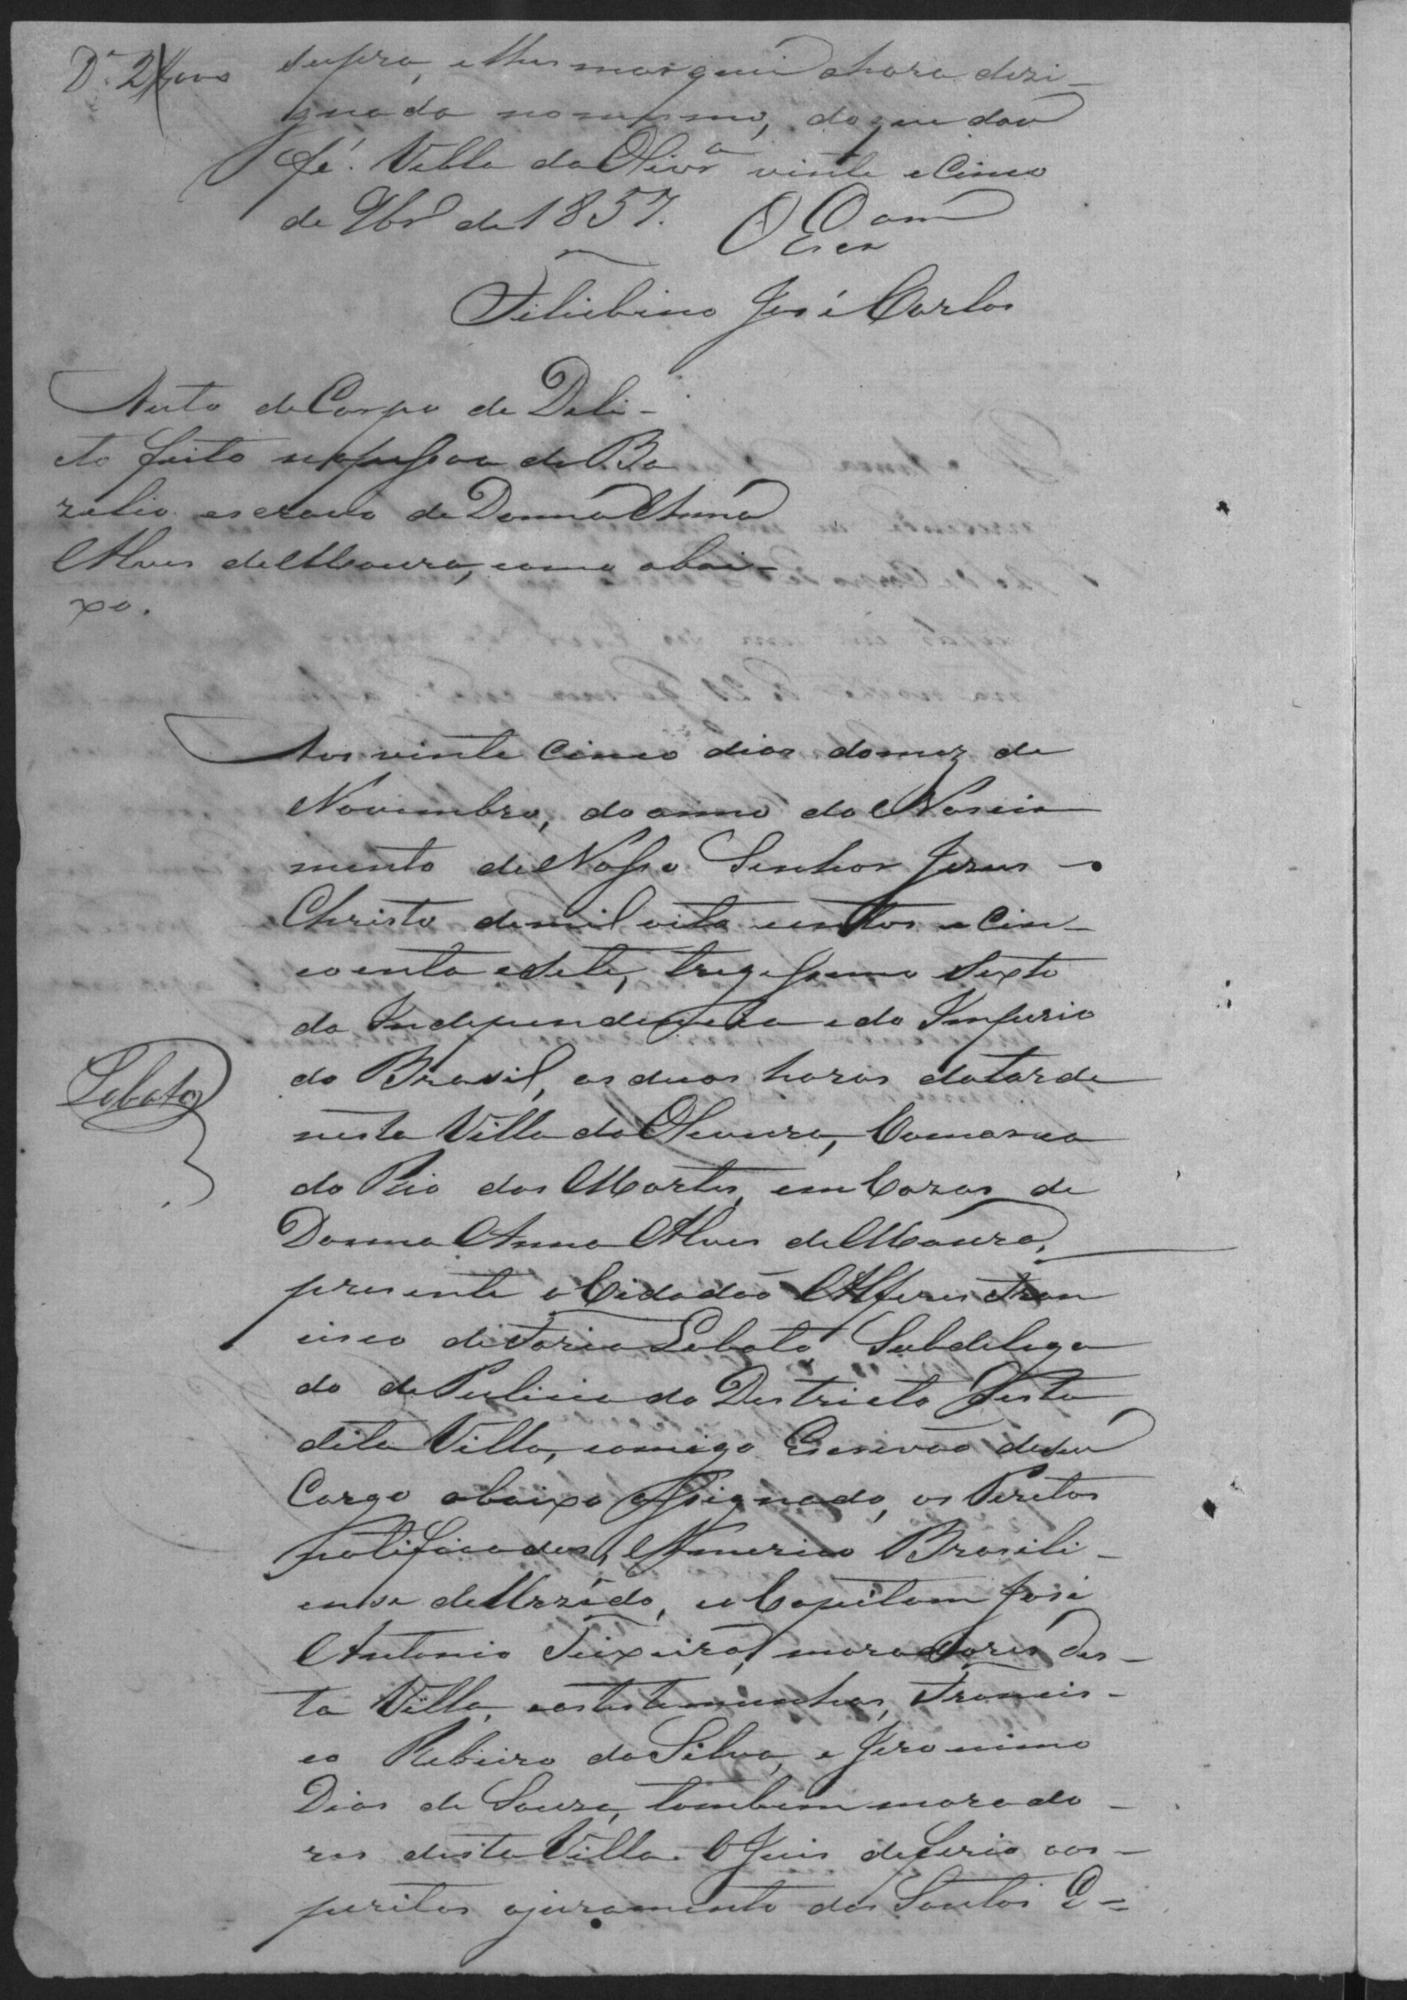 supra, e lhes marquei a hora dezi-
gnada no mesmo, do que dou
fé. Villa da Olivrª vinte e Cinco
de 9br.º de 1857. O Escam
Felisbino José Carlos
Auto de Corpo de Deli-
cto feito na pessoa de Ba
zilio escravo de Donna Anna
Alves de Moura, como abai-
xo.
Aos vinte Cinco dias do mez de
Novembro, do anno do Nascim
mento de Nosso Senhor Jesus
Christo de mil oito centos e Cin-
coenta e sete, trigessimo Sexto
da Independencia e do Imperio
do Brasil, as duas horas da tarde
nesta Villa da Oliveira, Comarca
Lobato
do Rio das Mortes, em Cazas de
Donna Anna Alves de Moura,
presente o Cidadão Alferes Fran
cisco de Faria Lobato Subdelega
do de Pulicia do Destricto desta
dita Villa, comigo Escrivão de seu
Cargo abaixo assignado, os Peritos
notificados, Americo Brasili-
ense de Urzédo, e o Capitam José
Antonio Teixeira, moradores des-
ta Villa, e as testemunhas, Francis-
co Ribeiro da Silva, e Jeronimo
Dias de Souza, tambem morado-
res desta Villa. O Juis deferio aos
peritos o juramento dos Santos E=